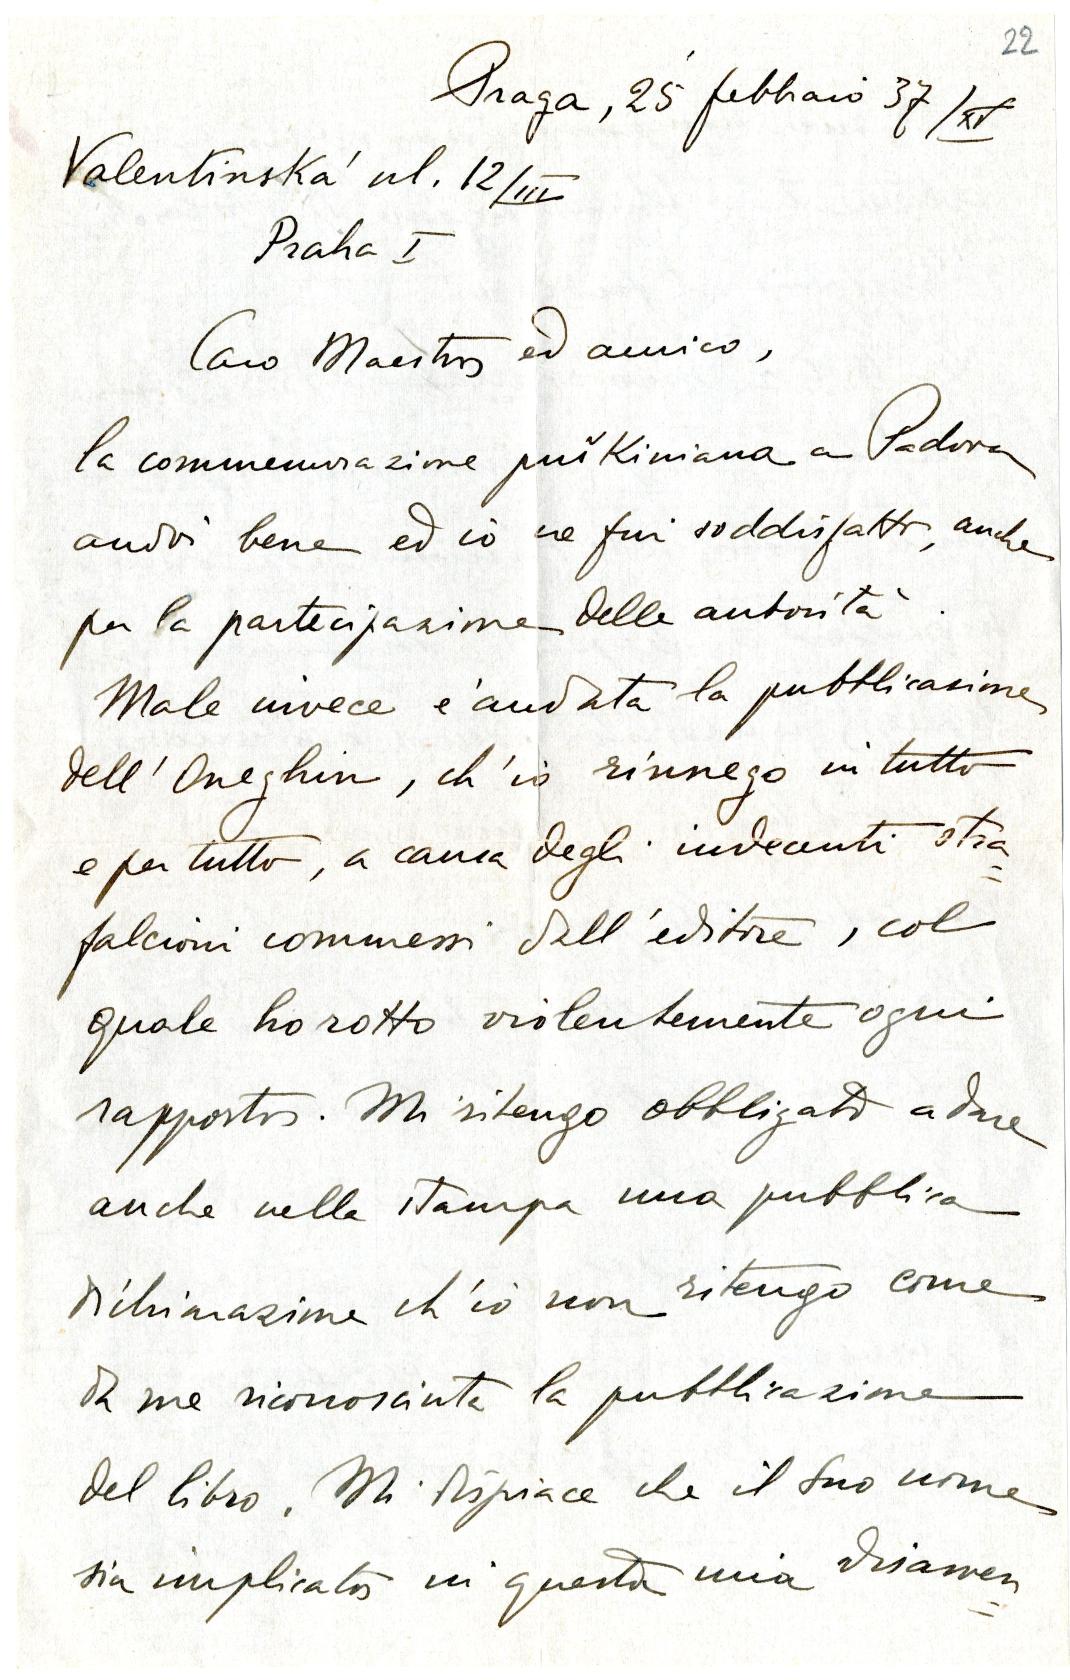 22
Praga, 25 febbraio 37/XV
Valentinská ul. 12/III
Praha I
Caro Maestro ed amico,
la commemorazione puškiniana a Padova
andò bene ed io ne fui soddisfatto, anche
per la partecipazione delle autorità.
Male invece è andata la pubblicazione
dell'Oneghin, ch'io rinnego in tutto
e per tutto, a causa degli indecenti stra=
falcioni commessi dall'editore, col
quale ho rotto violentemente ogni
rapporto. Mi ritengo obbligato a dare
anche nella stampa una pubblica
dichiarazione ch'io non ritengo come
da me riconosciuta la pubblicazione
del libro. Mi dispiace che il Suo nome
sia implicato in questa mia disavven=